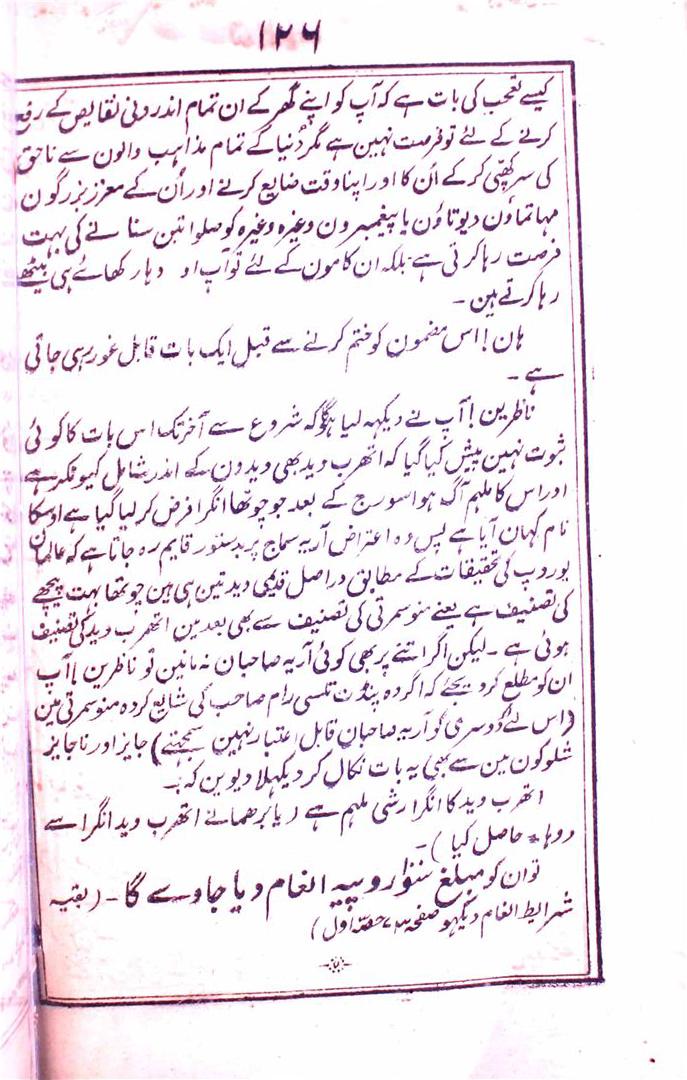 ۱۲۶
کیسے تعجب کی بات ہے کہ آپ کو اپنے گھر کے ان تمام اندرونی نقایص کے رفع
کرنے کے لئے تو فرصت نہین ہے مگر دُنیا کے تمام مذاہب والون سے ناحق
کی سر کھپی کر کے اُن کا اور اپنا وقت ضایع کرنے اور اُن کے معزز بزرگون
مہاتماؤن دیوتاؤن یا پیغمبرون وغیرہ وغیرہ کو صلواتین سنانے کی بہت
فرصت رہا کرتی ہے بلکہ ان کامون کے لئے تو آپ اودہار کھائے ہی بیٹھے
رہا کرتے ہین ۔
ہان! اس مضمون کو ختم کرنے سے قبل ایک بات قابل غور رہی جاتی
ہے ۔
ناظرین! آپ نے دیکھہ لیا ہوگا کہ شروع سے آخر تک اس بات کا کوئی
ثبوت نہین پیش کیا گیا کہ اتھرب وید بھی ویدون کے اندر شامل کیونکر ہے
اور اس کا ملہم آگ ہوا سورج کے بعد جو چوتھا انگرا فرض کر لیا گیا ہے اوسکا
نام کہان آیا ہے پس وہ اعتراض آریہ سماج پر بدستور قایم رہ جاتا ہے کہ عالمان
یوروپ کی تحقیقات کے مطابق دراصل قدیمی وید تین ہی ہین چوتھا بہت پیچھے
کی تصنیف ہے یعنے منوسمرتی کی تصنیف سے بھی بعد مین اتھرب وید کی تصنیف
ہوئی ہے ۔ لیکن اگر اتنے پر بھی کوئی آریہ صاحبان نہ مانین تو ناظرین! آپ
ان کو مطلع کر دیجئے کہ اگر وہ پنڈت تلسی رام صاحب کی شایع کردہ منوسمرتی مین
(اس لئے کہ دوسری کو آریہ صاحبان قابل اعتبار نہین سمجہتے) جایز اور ناجایز
شلوکون مین سے بھی یہ بات نکال کر دیکھلا دیوین کہ :۔
اتھرب وید کا انگرا رشی ملہم ہے (یا برھما نے اتھرب وید انگرا سے
دوہا * حاصل کیا) ۔
تو ان کو مبلغ سَو روپیہ انعام دیا جاوے گا ۔ (بقیہ
شرایط انعام دیکہو صفحہ ۷۳ حصّہ اول)